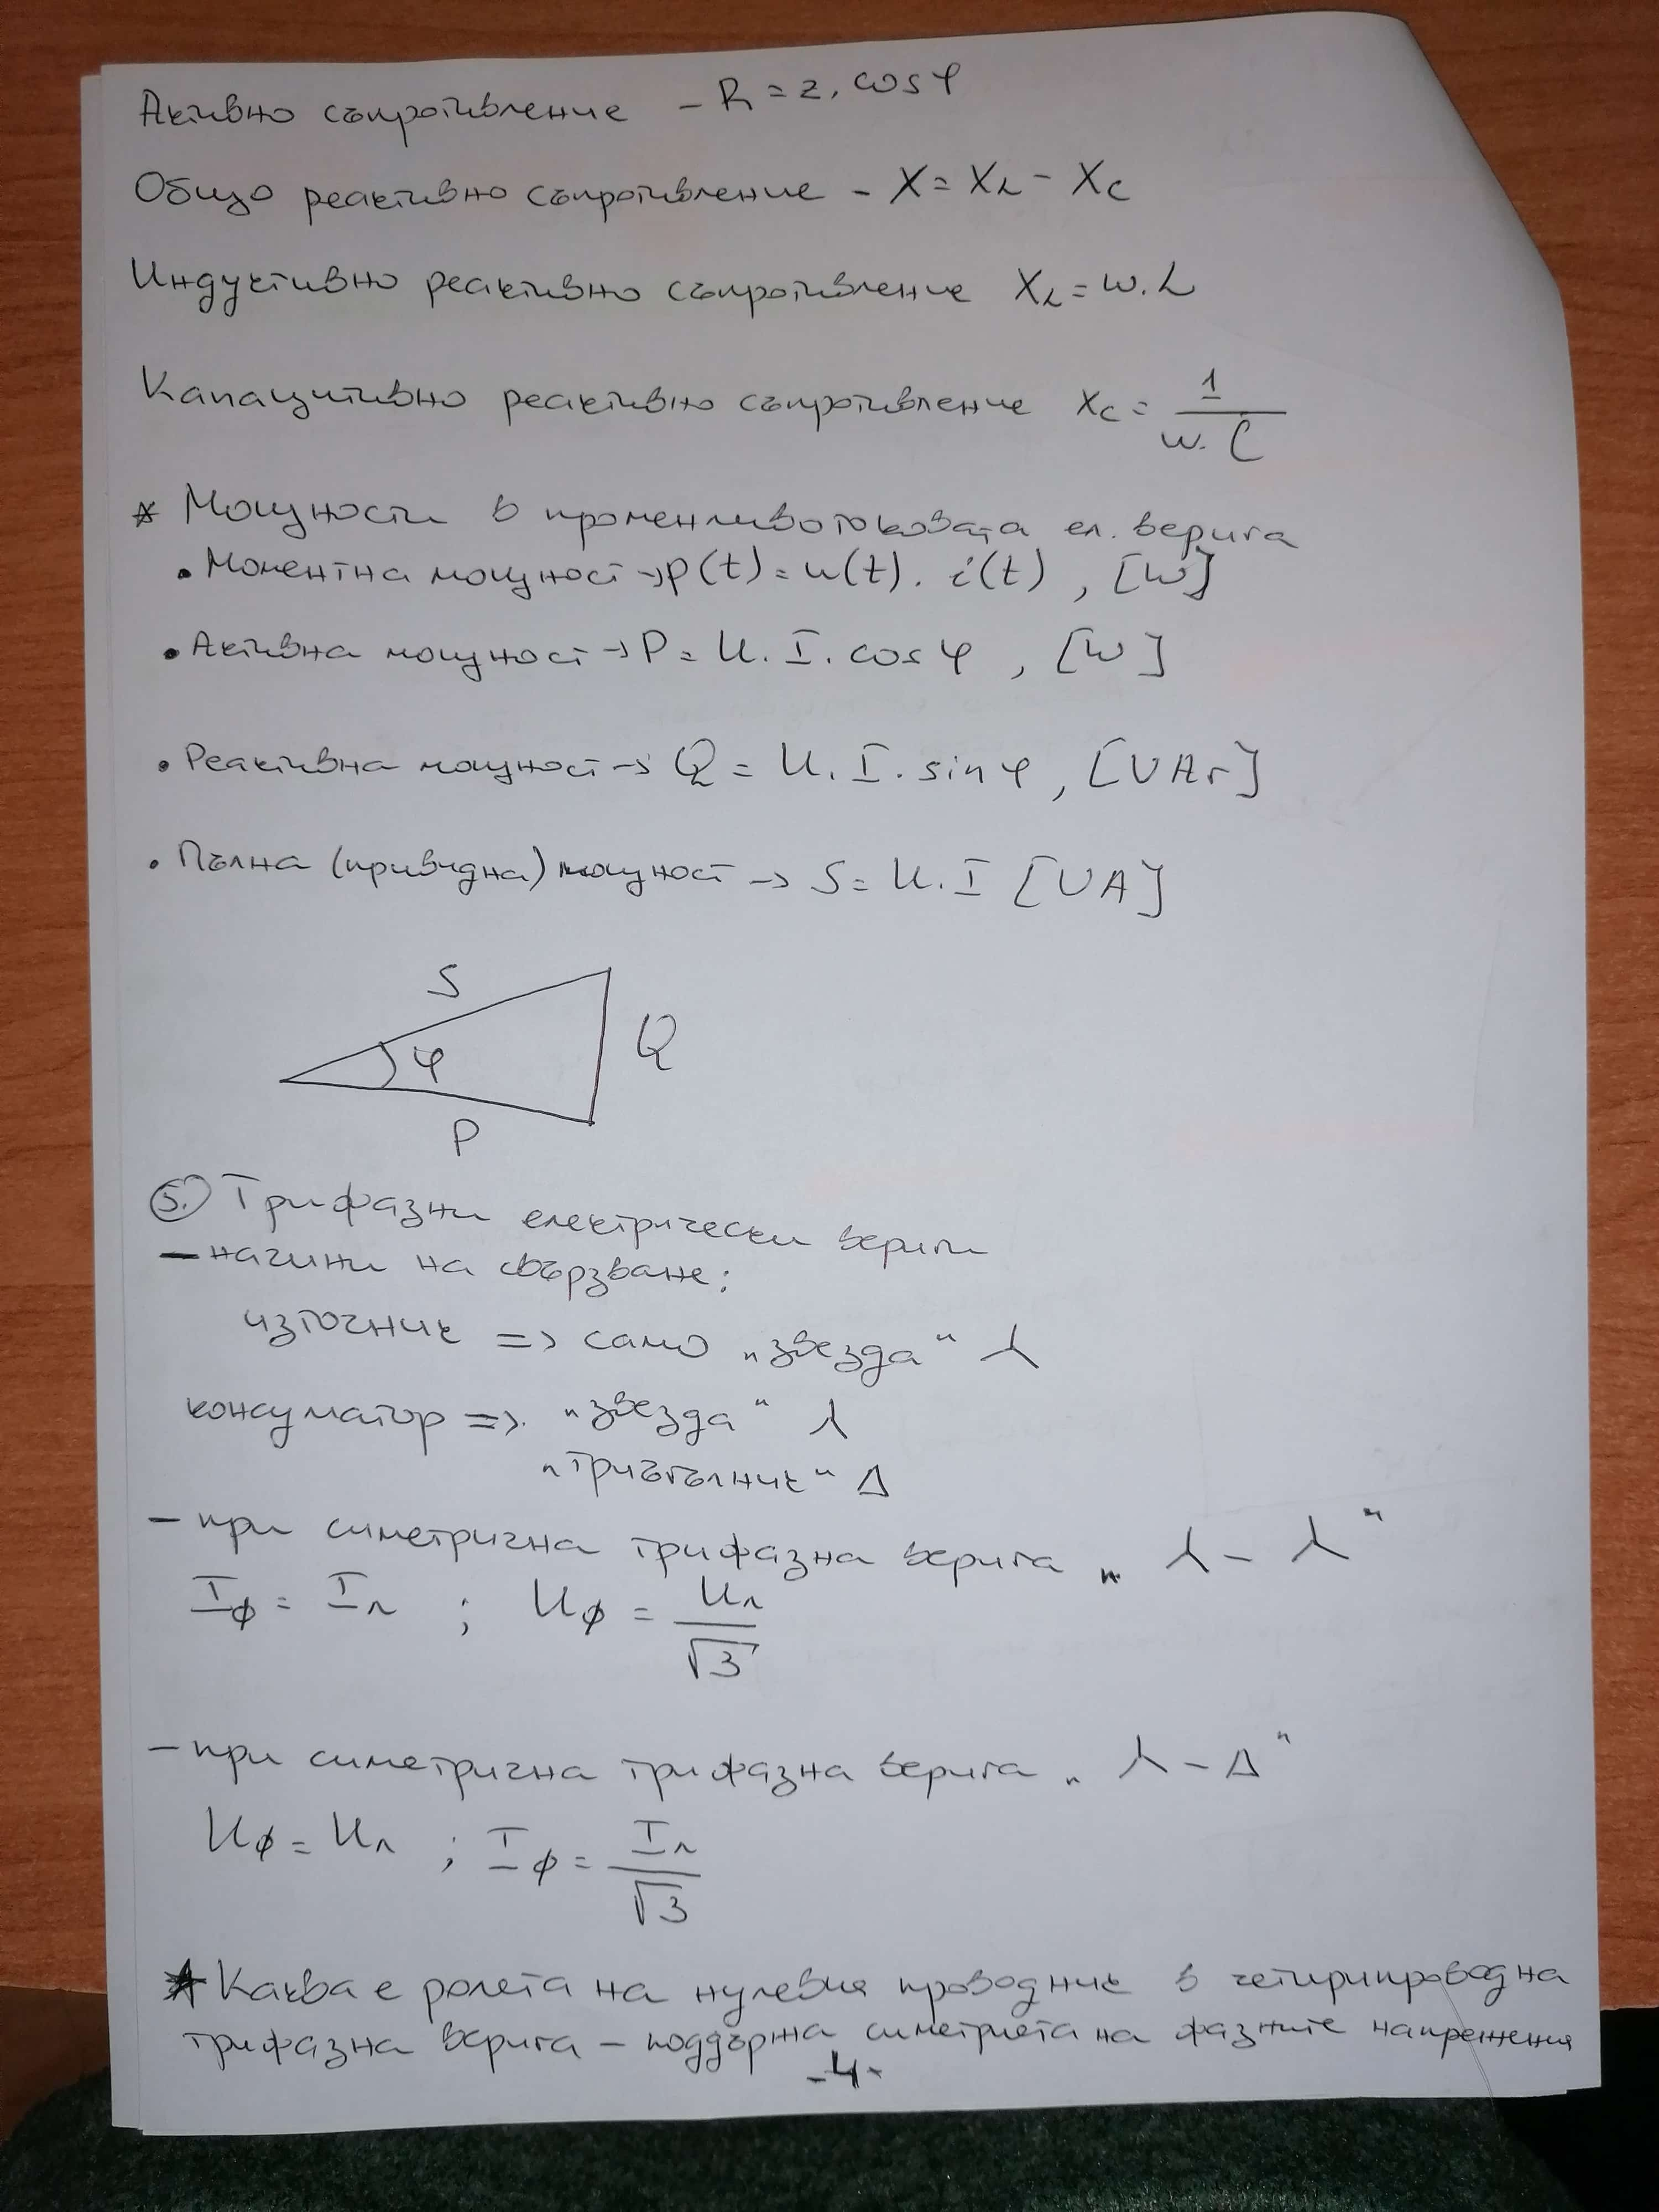 Активно съпротивление - R = z. cos φ
Общо реактивно съпротивление - X = XL - XC
Индуктивно реактивно съпротивление XL = w.L
Капацитивно реактивно съпротивление XC = 1 / w.C
* Мощности в променливотоковата ел. верига
• Моментна мощност → p(t) = u(t). i(t) , [W]
• Активна мощност → P = U.I. cos φ , [W]
• Реактивна мощност → Q = U.I. sin φ , [VAr]
• Пълна (привидна) мощност → S = U.I [VA]
S
φ
Q
P
5. Трифазни електрически вериги
- начини на свързване:
източник => само „звезда“ ⅄
консуматор => „звезда“ ⅄
„триъгълник“ Δ
- при симетрична трифазна верига „ ⅄ - ⅄ “
Iф = Iл ; Uф = Uл / √3
- при симетрична трифазна верига „ ⅄ - Δ “
Uф = Uл ; Iф = Iл / √3
* Каква е ролята на нулевия проводник в четирипроводна
трифазна верига - поддържа симетрията на фазните напрежения
-4-